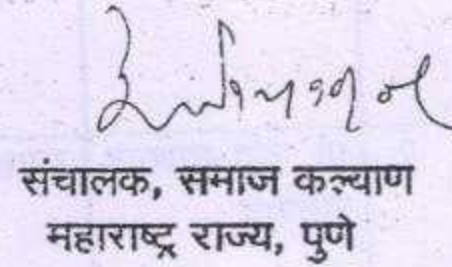 संचालक, समाज कल्याण
महाराष्ट्र राज्य, पुणे